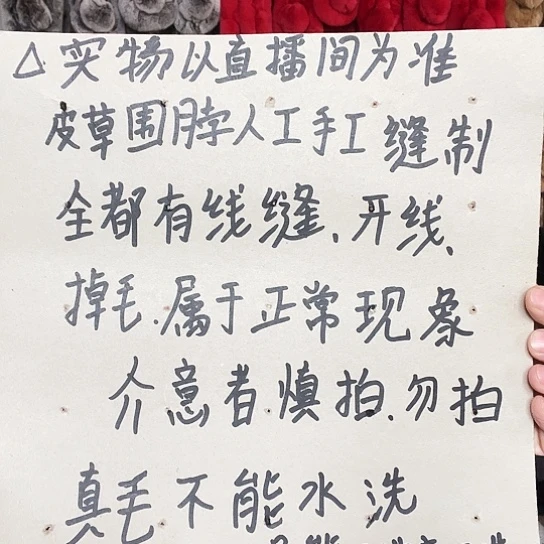 △实物以直播间为准
皮草围脖人工手工缝制
全都有线缝、开线、
掉毛、属于正常现象
介意者慎拍、勿拍
真毛不能水洗